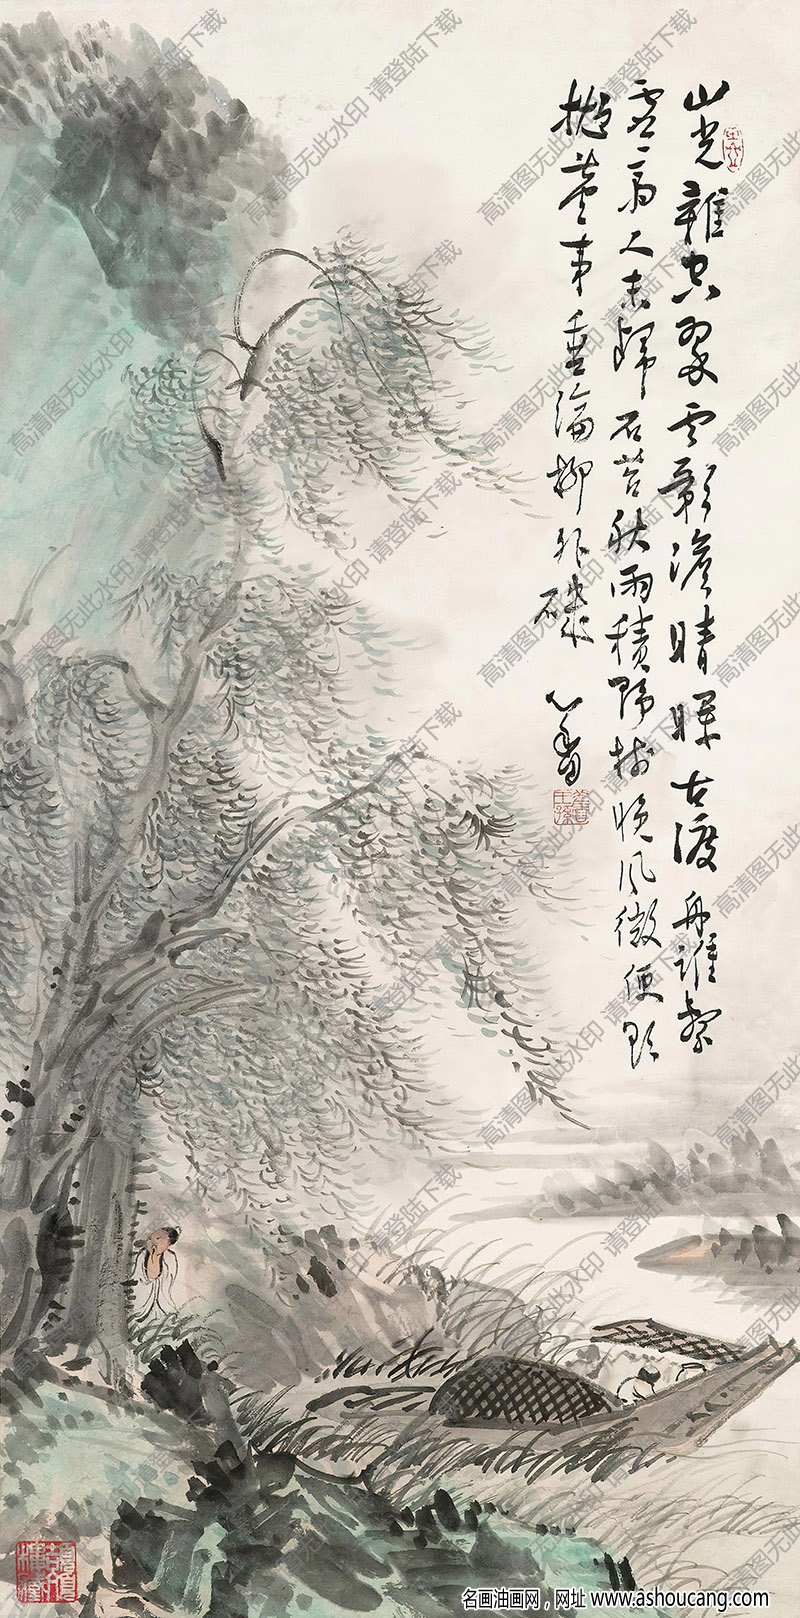 山光雜空翠雲影澹晴暉古渡舟誰繫
虛亭人未歸石苔秋雨積野樹晚風微便欲
拋事垂綸柳外磯 心畬
高清图无此水印 请登陆下载
名画油画网，网址 www.ashoucang.com